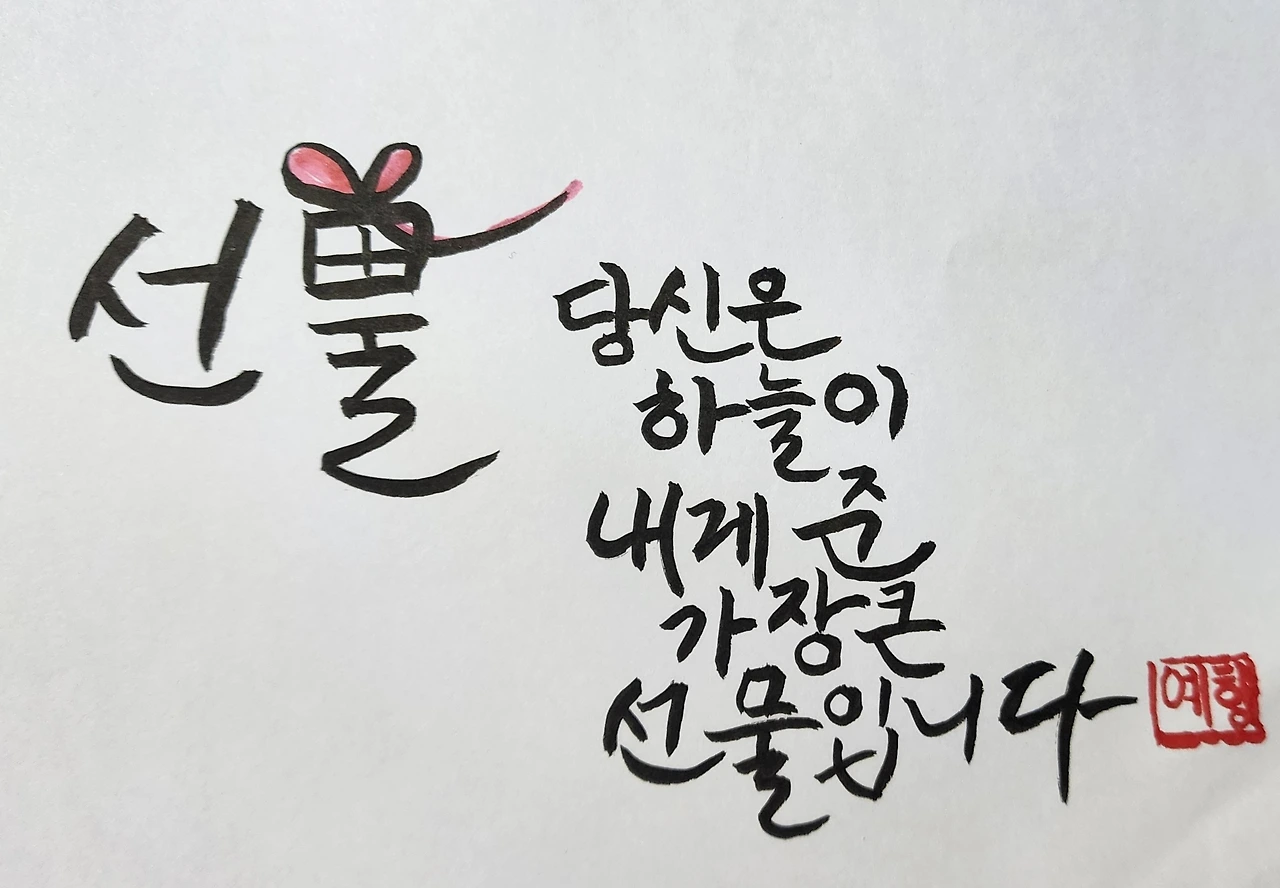 선물
당신은
하늘이
내게 준
가장 큰
선물입니다
예행